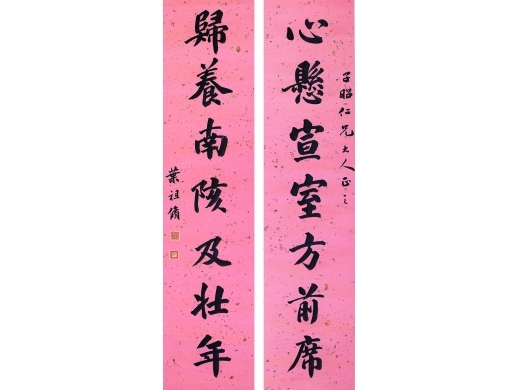 心懸宣室方前席
子昭仁兄大人正之
歸養南陔及壯年
葉祖脩